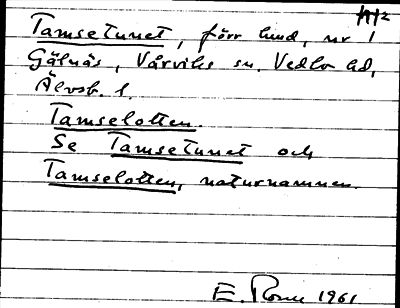 Tamsetunet, förr hmd, nr 1
Gälnäs, Vårviks sn. Vedbo hd,
Älvsb. l.
Tamselotten.
Se Tamsetunet och
Tamselotten, naturnamnen.
E. 1961